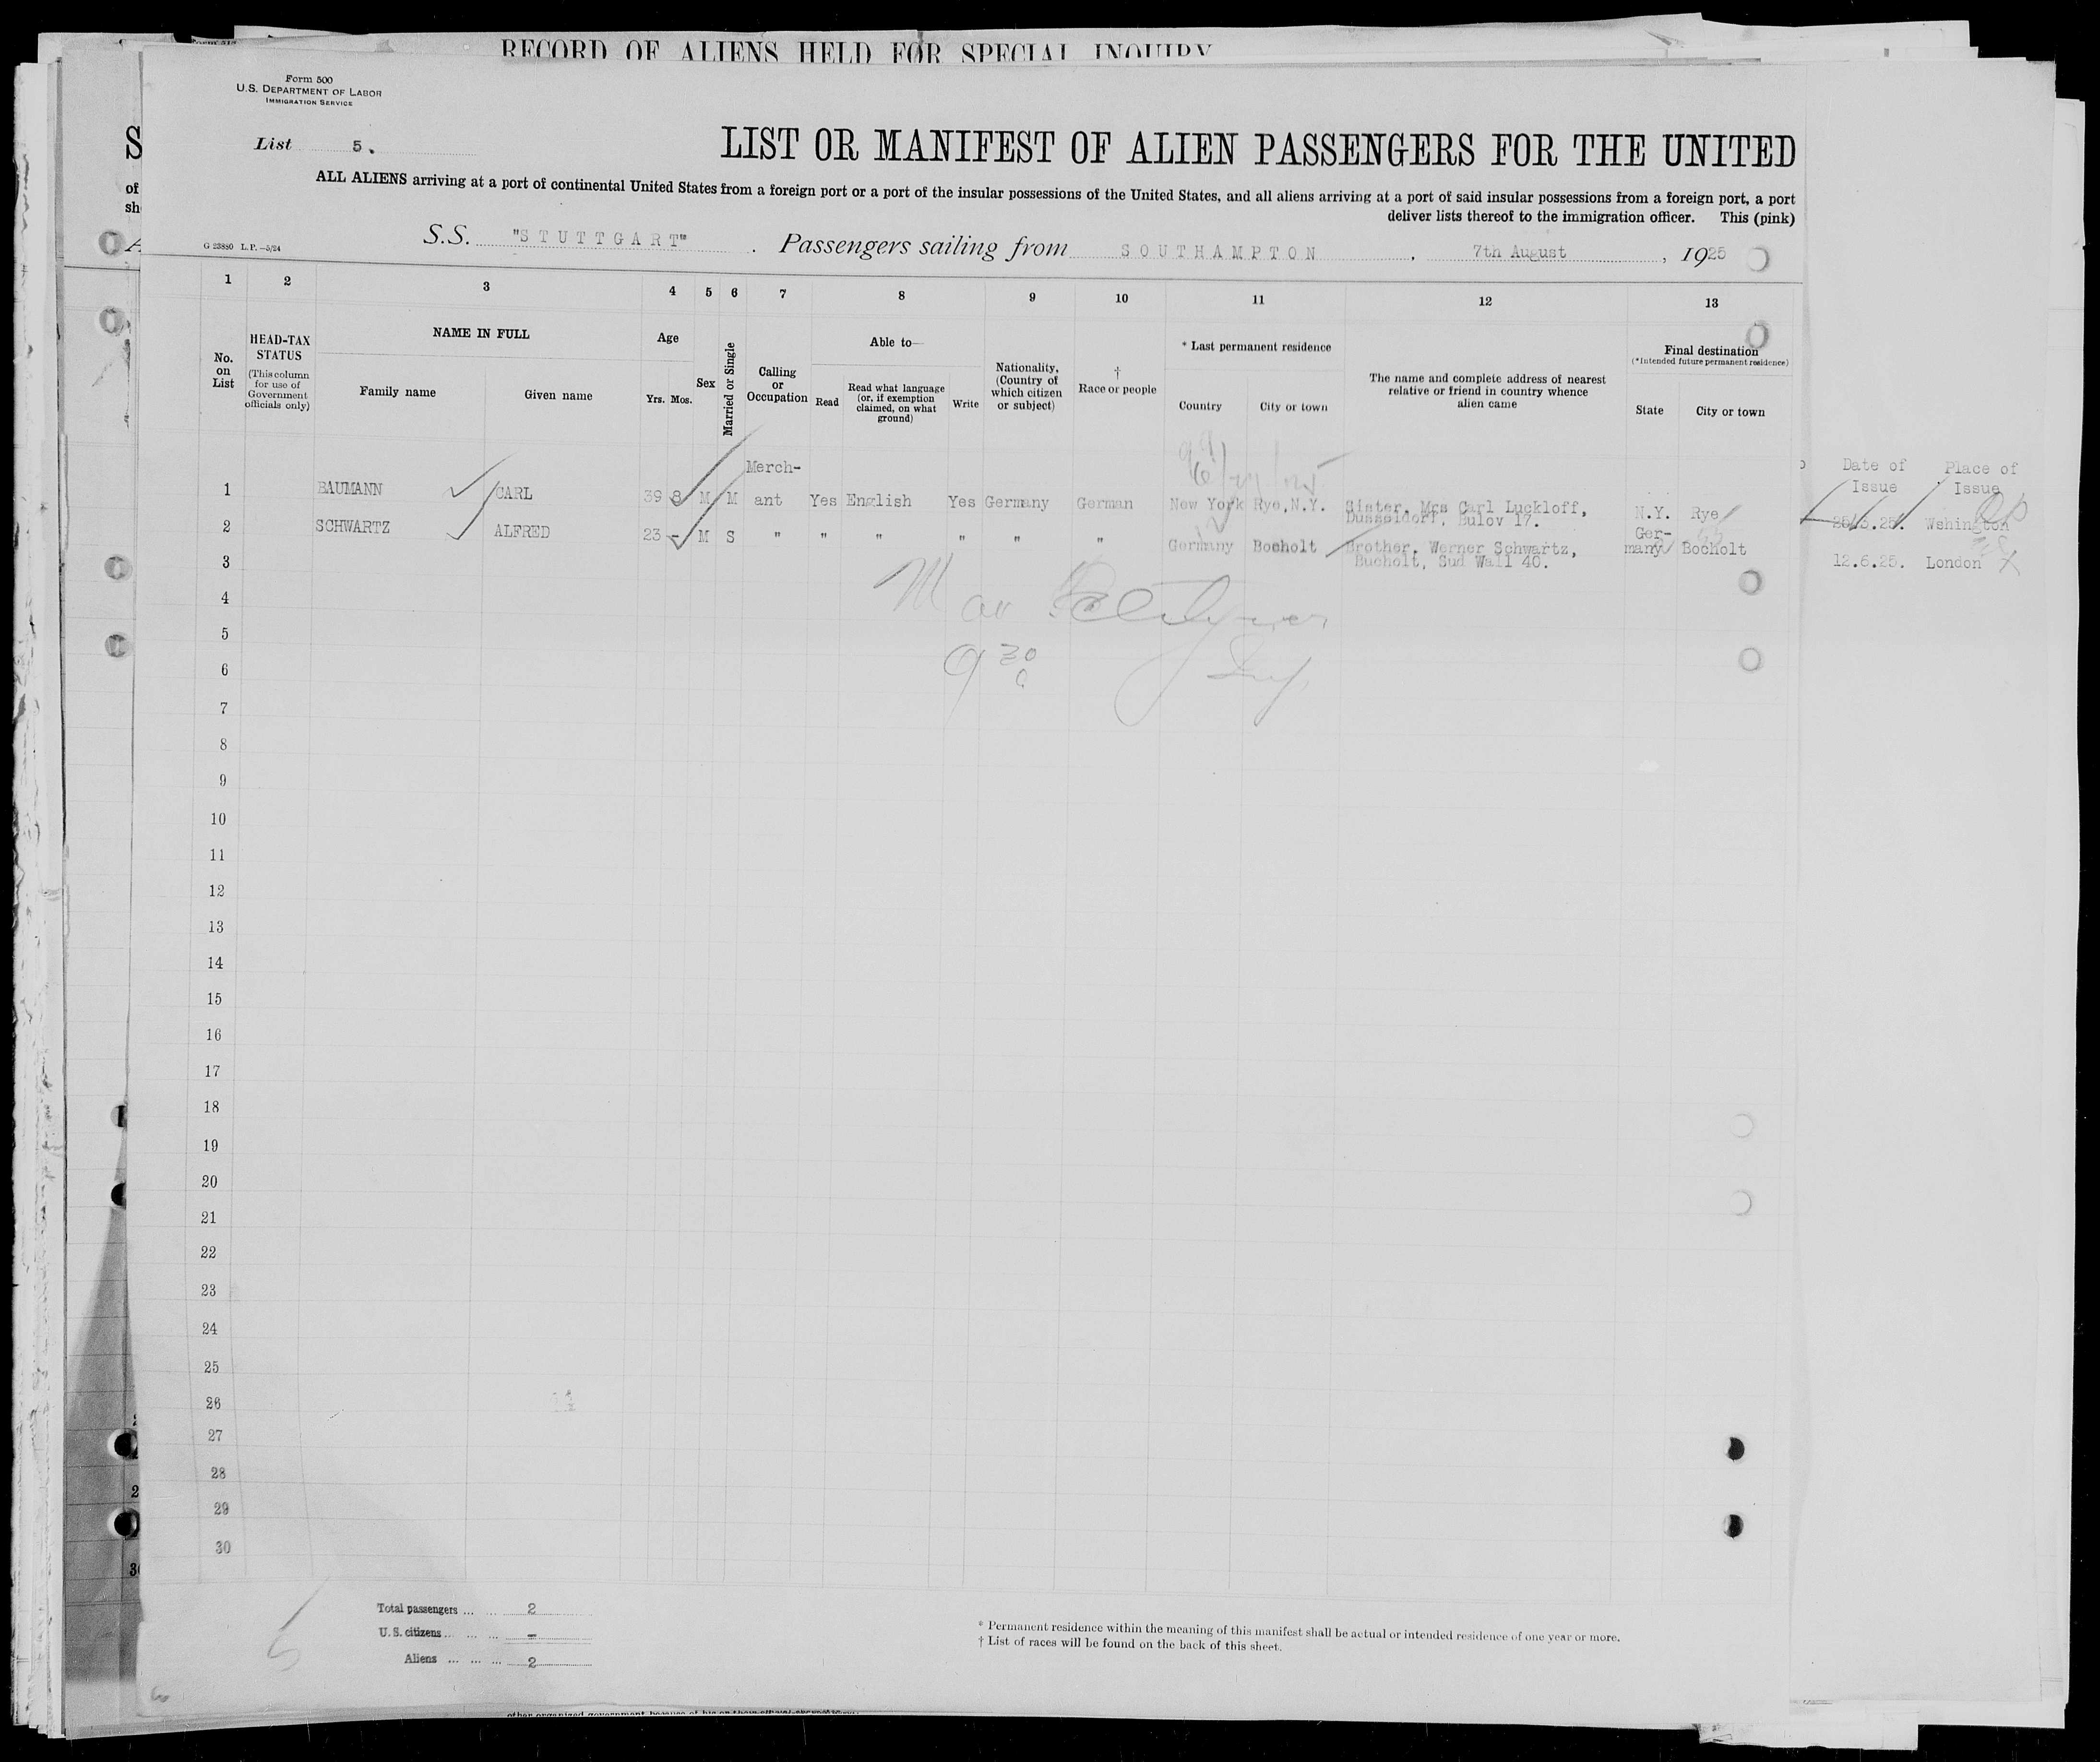 RECORD OF ALIENS HELD FOR SPECIAL INQUIRY
Form 500
U.S. DEPARTMENT OF LABOR
IMMIGRATION SERVICE
List 5.
LIST OR MANIFEST OF ALIEN PASSENGERS FOR THE UNITED
ALL ALIENS arriving at a port of continental United States from a foreign port or a port of the insular possessions of the United States, and all aliens arriving at a port of said insular possessions from a foreign port, a port
deliver lists thereof to the immigration officer. This (pink)
G 23880 L.P.—5/24
S.S. "STUTTGART". Passengers sailing from SOUTHAMPTON, 7th August, 1925
1 2 3 4 5 6 7 8 9 10 11 12 13
No. on List
HEAD-TAX STATUS
(This column for use of Government officials only)
NAME IN FULL
Family name Given name
Age
Yrs. Mos.
Sex
Married or Single
Calling or Occupation
Able to—
Read
Read what language (or, if exemption claimed, on what ground)
Write
Nationality, (Country of which citizen or subject)
† Race or people
* Last permanent residence
Country City or town
The name and complete address of nearest relative or friend in country whence alien came
Final destination
(*Intended future permanent residence)
State City or town
Date of Issue
Place of Issue
1 BAUMANN CARL 39 8 M M Merch-ant Yes English Yes Germany German New York Rye, N.Y. Sister, Mrs Carl Luckloff,
Dusseldorf, Bulov 17. N.Y. Rye 25.5.25. Wshington
2 SCHWARTZ ALFRED 23 - M S " " " " " " Germany Bocholt Brother, Werner Schwartz,
Bucholt, Sud Wall 40. Ger-many Bocholt 12.6.25. London
3
4
5
9 30
6
7
8
9
10
11
12
13
14
15
16
17
18
19
20
21
22
23
24
25
26
27
28
29
30
Total passengers ... ... 2
U.S. citizens ... ... ... -
Aliens ... ... ... 2
* Permanent residence within the meaning of this manifest shall be actual or intended residence of one year or more.
† List of races will be found on the back of this sheet.